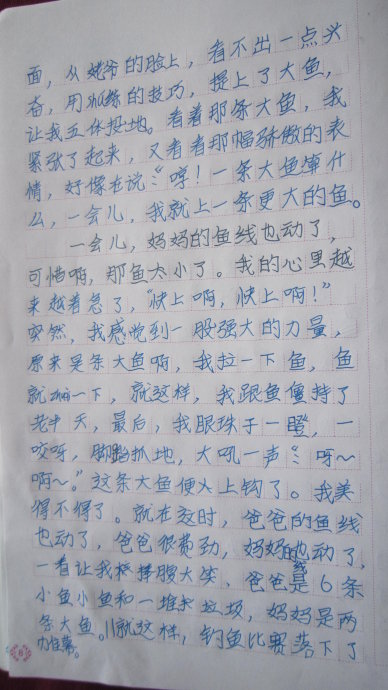 面，从姥爷的脸上，看不出一点兴
奋，用shú练的技巧，提上了大鱼，
让我五体投地。看着那条大鱼，我
紧张了起来，又看看那幅骄傲的表
情，好像在说：“哼！一条大鱼算什
么，一会儿，我就上一条更大的鱼。
一会儿，妈妈的鱼线也动了，
可惜啊，那鱼太小了。我的心里越
来越着急了，“快上啊，快上啊！”
突然，我感觉到一股强大的力量，
原来是条大鱼啊，我拉一下鱼，鱼
就一下，就这样，我跟鱼僵持了
老半天，最后，我眼珠子一瞪，一
咬呀，脚趾抓地，大吼一声：“呀～
啊～。”这条大鱼便上钩了。我美
得不得了。就在这时，爸爸的鱼线
也动了，爸爸很费劲，妈妈的线也动了，
一看让我捧腹大笑，爸爸是6条
小鱼小鱼和一堆垃圾，妈妈是两
条大鱼。就这样，钓鱼比赛落下了
力帷幕。